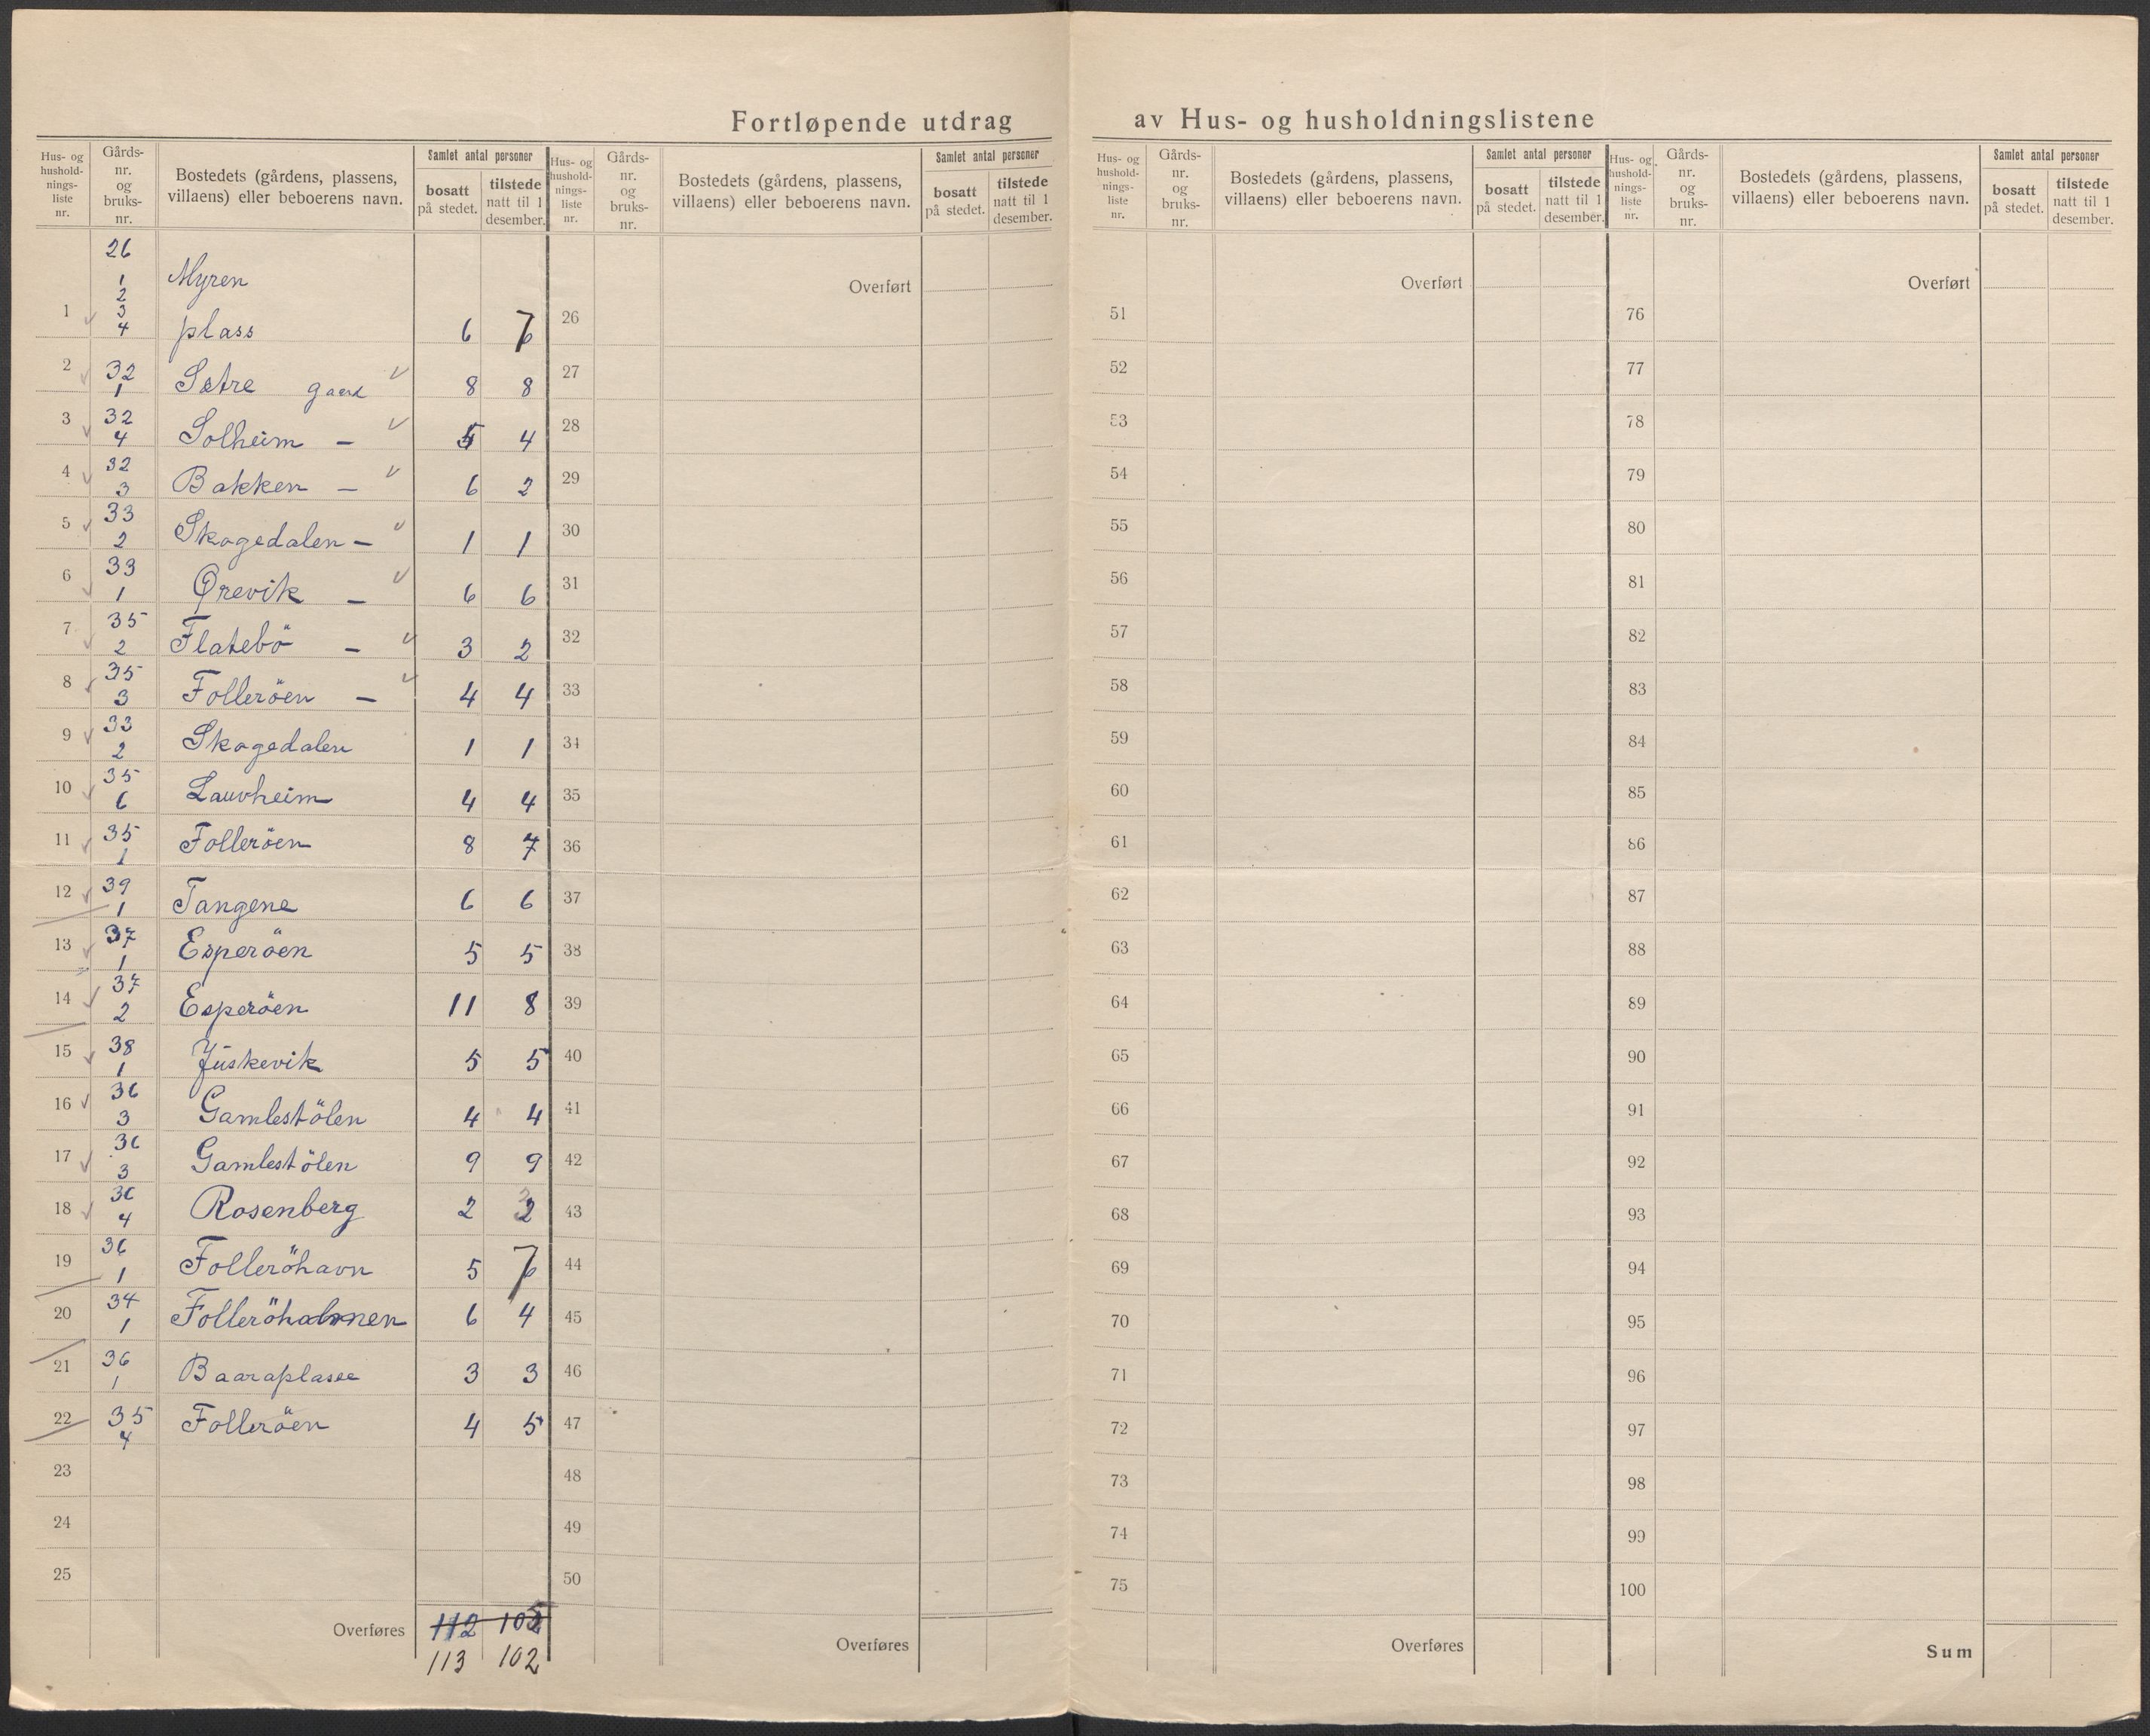 Fortløpende utdrag av Hus- og husholdningslistene
Hus- og husholdnings-liste nr. Gårds-nr. og bruks-nr. Bostedets (gårdens, plassens, villaens) eller beboerens navn. Samlet antal personer bosatt på stedet. tilstede natt til 1 desember.
Hus- og husholdnings-liste nr. Gårds-nr. og bruks-nr. Bostedets (gårdens, plassens, villaens) eller beboerens navn. Samlet antal personer bosatt på stedet. tilstede natt til 1 desember.
Hus- og husholdnings-liste nr. Gårds-nr. og bruks-nr. Bostedets (gårdens, plassens, villaens) eller beboerens navn. Samlet antal personer bosatt på stedet. tilstede natt til 1 desember.
Hus- og husholdnings-liste nr. Gårds-nr. og bruks-nr. Bostedets (gårdens, plassens, villaens) eller beboerens navn. Samlet antal personer bosatt på stedet. tilstede natt til 1 desember.
Overført Overført Overført
1 26 1 2 3 4 Myren plass 6 7
2 32 1 Sætre gaard 8 8
3 32 4 Solheim – 5 4
4 32 3 Bakken – 6 2
5 33 2 Skogedalen – 1 1
6 33 1 Ørevik – 6 6
7 35 2 Flatebö – 3 2
8 35 3 Folleröen – 4 4
9 33 2 Skogedalen 1 1
10 35 6 Lauvheim 4 4
11 35 1 Folleröen 8 7
12 39 1 Tangene 6 6
13 37 1 Esperöen 5 5
14 37 2 Esperöen 11 8
15 38 1 Juskevik 5 5
16 36 3 Gamlestölen 4 4
17 36 3 Gamlestölen 9 9
18 36 4 Rosenberg 2 2
19 36 1 Folleröhavn 5 7
20 34 1 Folleröholmen 6 4
21 36 1 Baaraplasse 3 3
22 35 4 Folleröen 4 5
23
24
25
Overføres 112 102
113 102
26
27
28
29
30
31
32
33
34
35
36
37
38
39
40
41
42
43
44
45
46
47
48
49
50
Overføres
51
52
53
54
55
56
57
58
59
60
61
62
63
64
65
66
67
68
69
70
71
72
73
74
75
Overføres
76
77
78
79
80
81
82
83
84
85
86
87
88
89
90
91
92
93
94
95
96
97
98
99
100
Sum